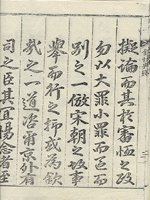 擬論而其於審恤之政
勿以大罪小罪而區而
別之一倣宋朝之故事
舉而行之抑或為欽
之一道咨爾京外有
司之臣其宜惕念者至